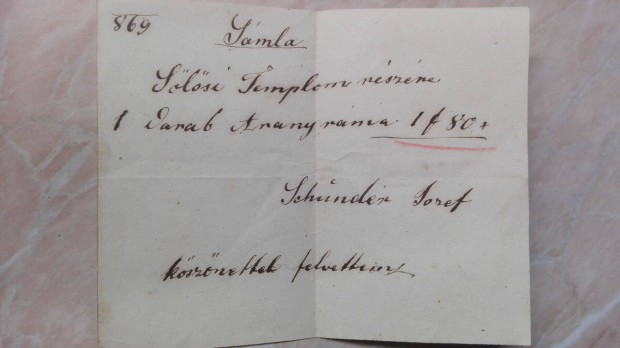 869
Számla
Sőlősi Templom részére
1 Darab Arany ráma 1 f 80 x
Schunder Jozef
köszönettel felvettem